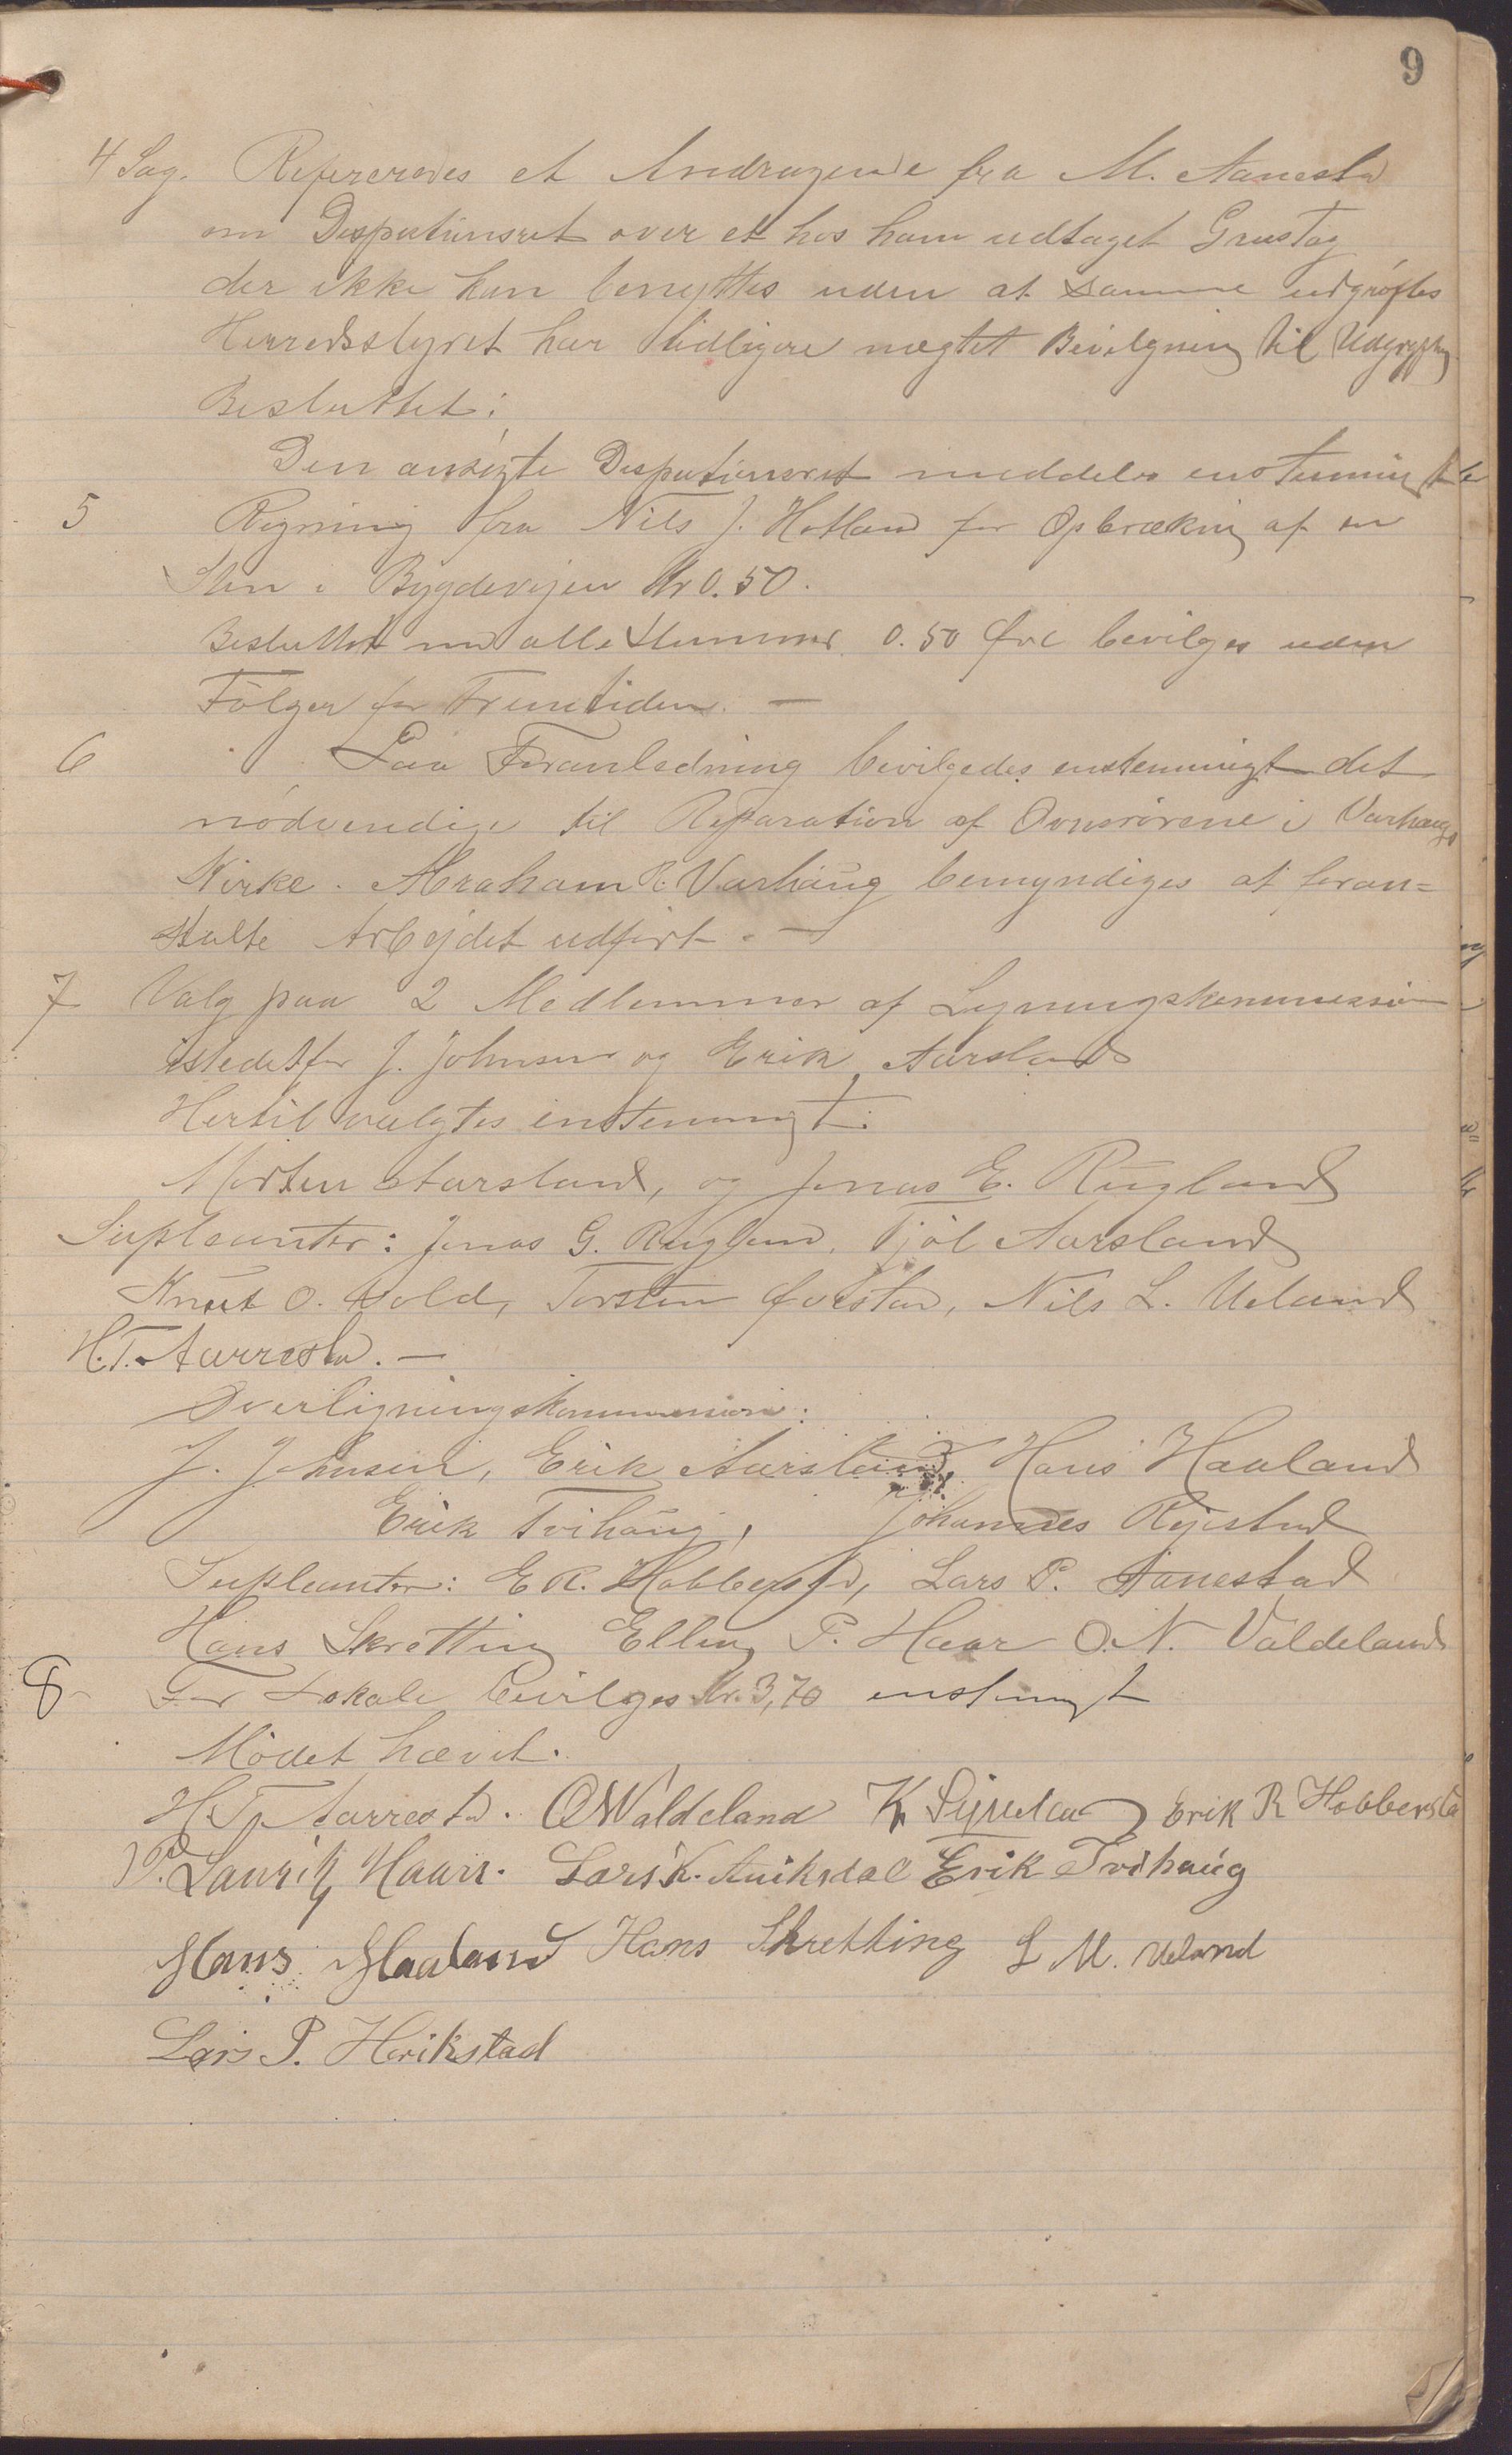 9
4 Sag. Refereredes et Andragende fra M. Aanestad
om Dispositionsret over et hos ham udtaget Grustag
der ikke kan benyttes uden at samme udgrøftes
Herredsstyret har tidligere nægtet Bevilgning til Udgrøftng
Besluttet:
Den ansøgte Dispositionsret meddeles enstemmigt
5 Regning fra Nils J. Hotland for Opbrækning af en
Sten i Bygdevejen Kr 0.50.
Besluttet med alle Stemmer 0.50 Øre bevilges uden
Følger for Fremtiden. —
6 Paa Foranledning bevilgedes enstemmigt det
nødvendige til Reparation af Ovnsrørene i Varhaugs
Kirke. Abraham R. Varhaug bemyndiges at foran=
stalte Arbejdet udført. —
7 Valg paa 2 Medlemmer af Ligningskommission
istedetfor J. Johnsen og Erik Aarsland
Hertil valgtes enstemmigt:
Morten Aarsland, og Jonas E. Rugland
Supleanter: Jonas G. Rugland, Kjøl Aarsland
Knut O. Vold, Torsten Ødestad, Nils L. Ueland
H.T. Aarrestad. —
Overligningskommission:
J. Johnsen, Erik Aarsland, Hans Haaland
Erik Tvihaug, Johannes Rejestad
Supleanter: E R. Hobberstad, Lars P. Aanestad
Hans Skretting Elling P. Haar O.N. Valdeland
8 For Lokale bevilges Kr. 3,70 enstemigt
Mødet hævet.
H. T. Aarrestad. O N Valdeland K Erik R Hobberstad
P. Lauritz Haarr. Lars K. Auiksdal Erik Tvihaug
Hans Haaland Hans Skretting L M. Ueland
Lars P. Herikstad